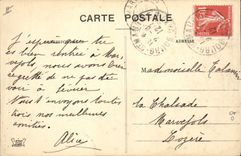 CARTE POSTALE
J'espère que
tu es bien rentrée à Mar-
vejols, nous avons bien
regretté de ne pas
voir à
Nous t'envoyons toutes
trois nos meilleurs
Alice
ADRESSE
Mademoiselle
La Chalsade
Marvejols
Lozère